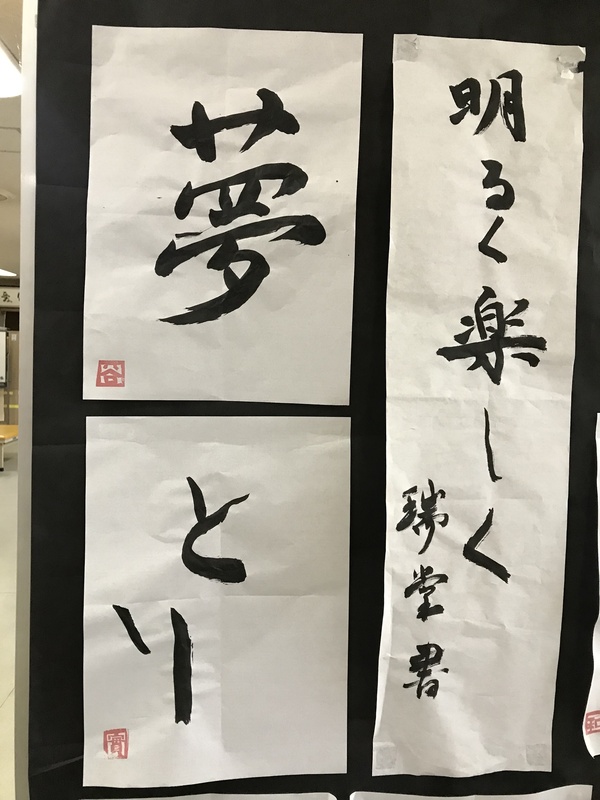 明るく楽しく
瑞堂書
夢
谷
とり